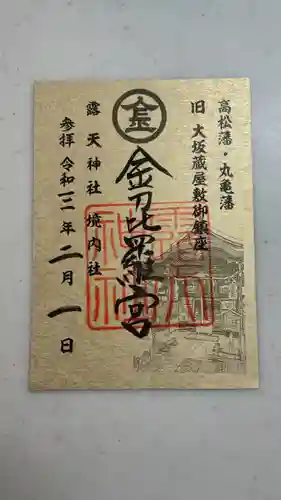 高松藩・丸亀藩
旧 大坂蔵屋敷御鎮座
金
金刀毘羅宮
露天神社 境内社
参拝 令和三年二月一日